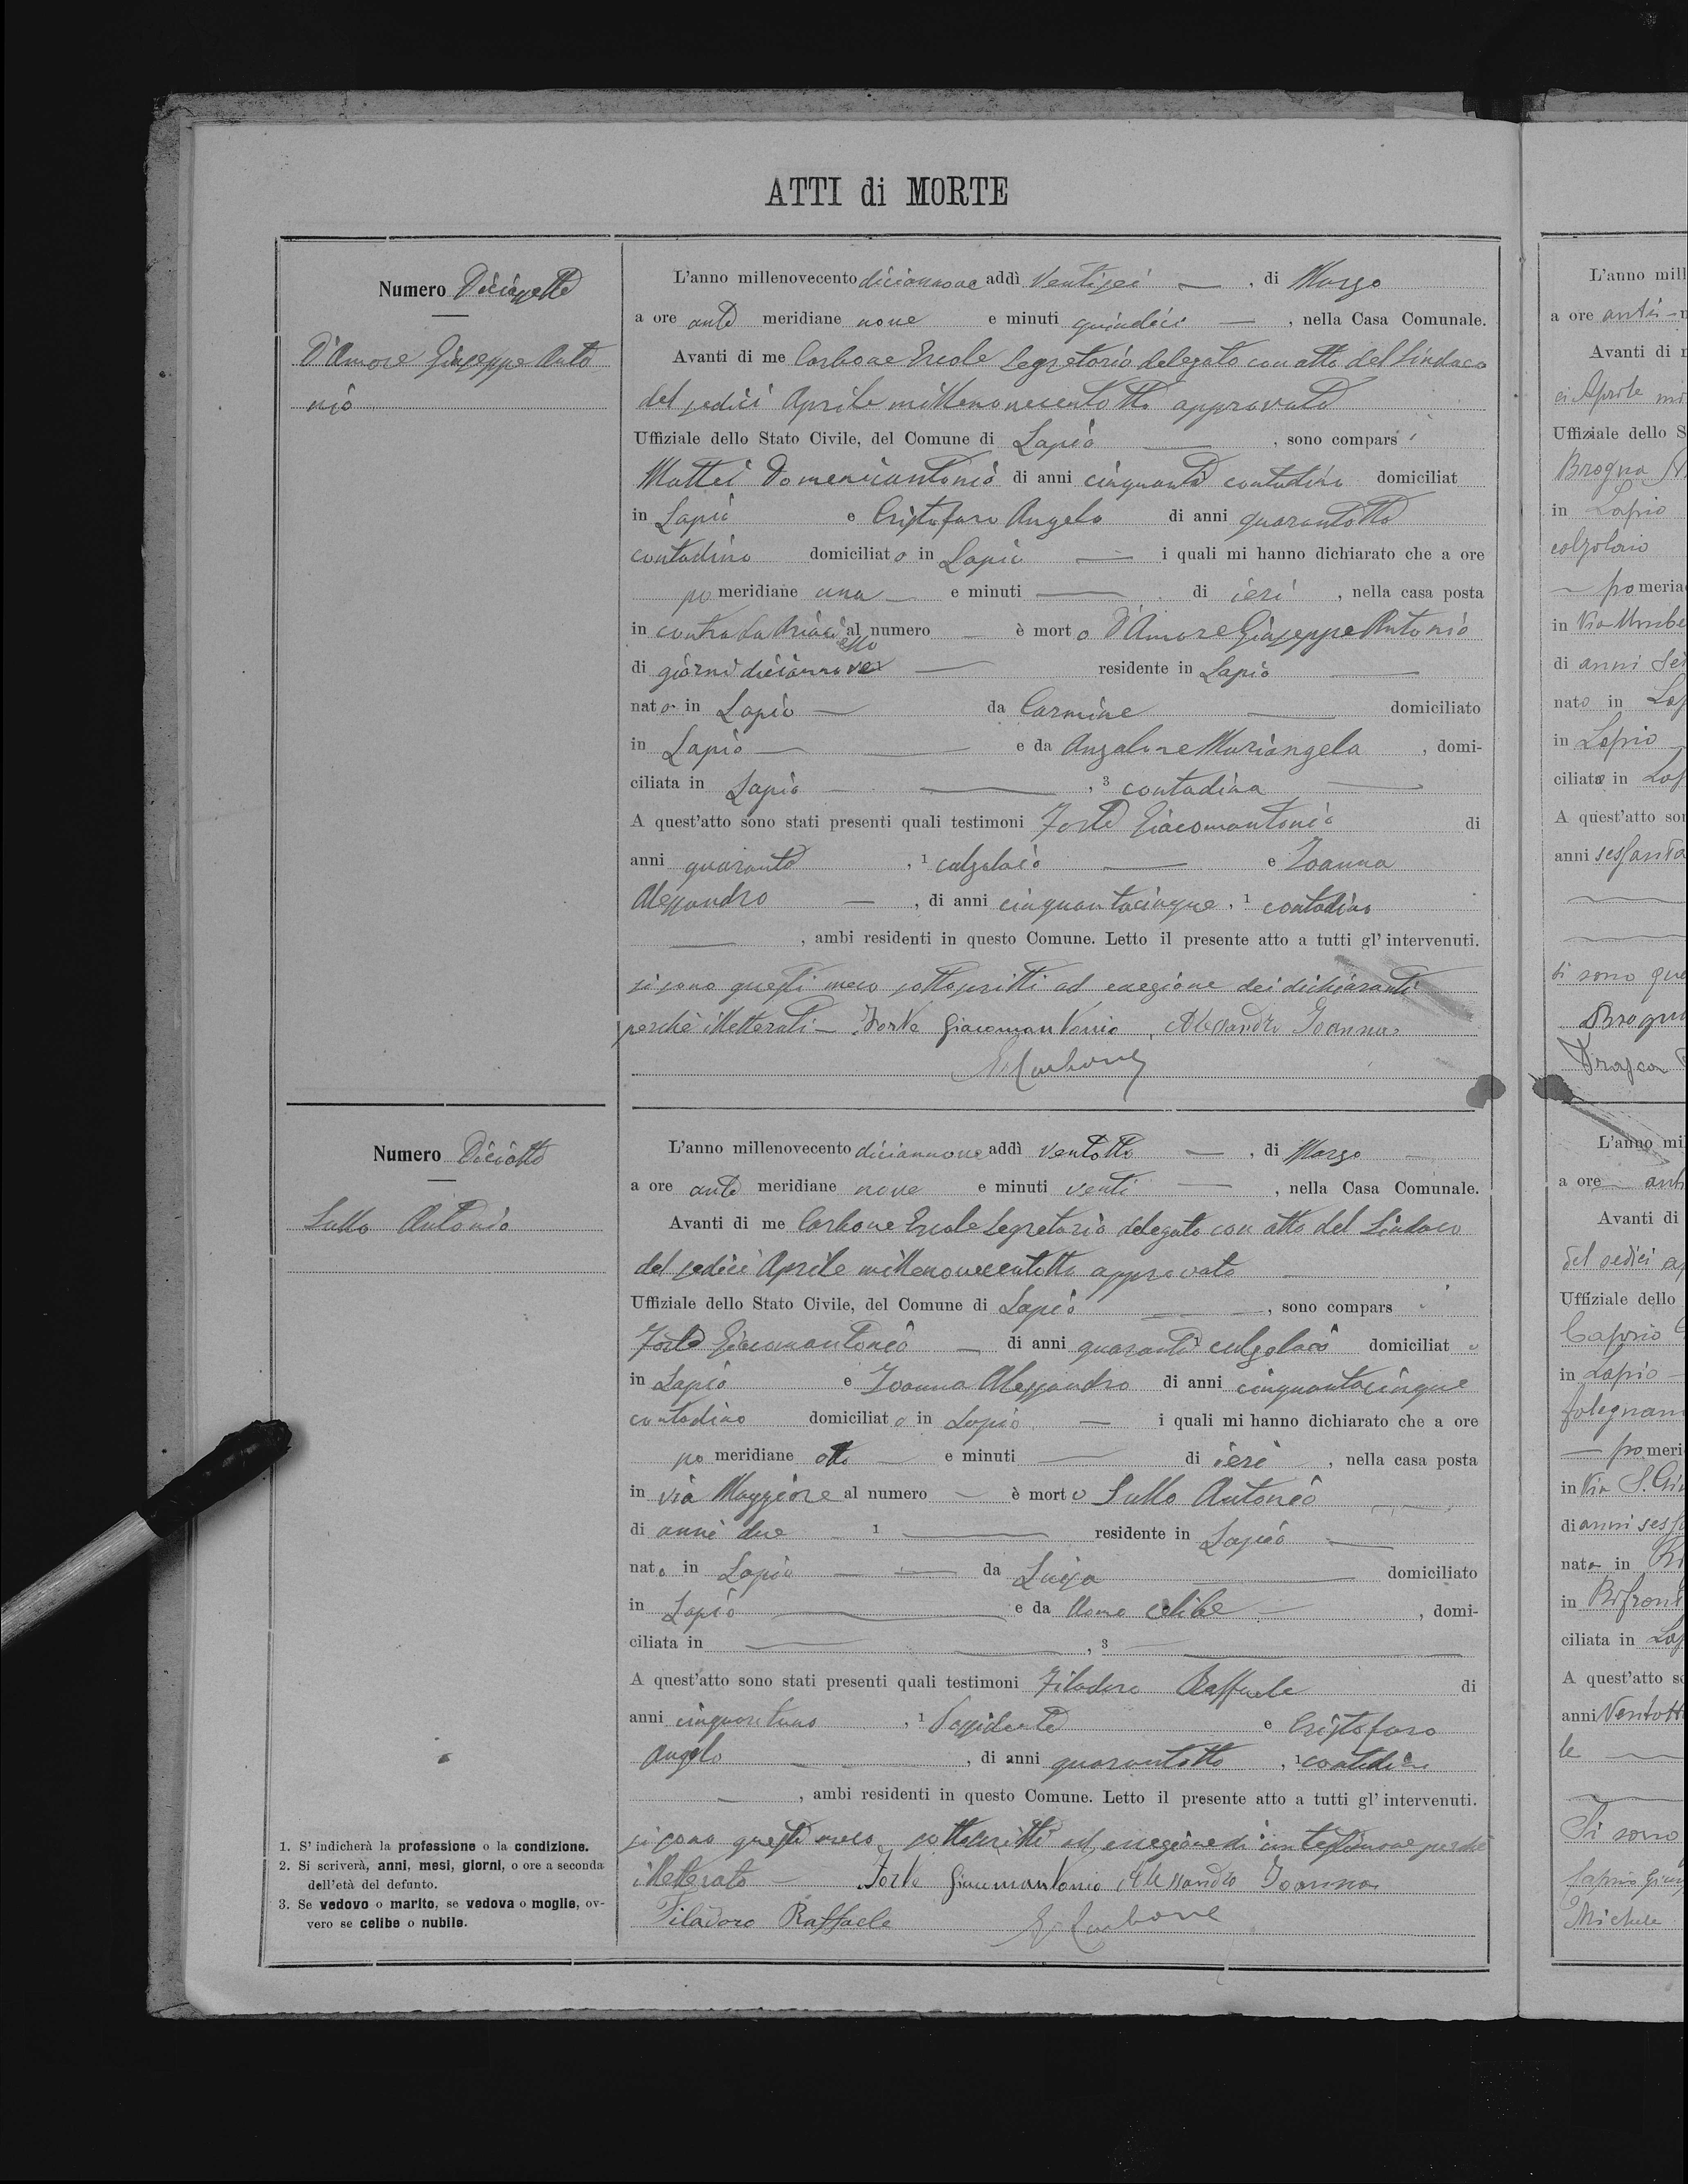 ATTI di MORTE
Numero Diciassette
D'Amore Giuseppe Anto
nio
L'anno millenovecento diciannove addì Ventisei — , di Marzo
a ore ante meridiane nove e minuti quindici — , nella Casa Comunale.
Avanti di me Carbone Ercole Segretario delegato con atto del Sindaco
del sedici Aprile millenovecentotto approvato
Uffiziale dello Stato Civile, del Comune di Lapio — , sono compars i
Mattei Domenicantonio di anni cinquanta contadino domiciliat
in Lapio e Cristofaro Angelo di anni quarantotto
contadino domiciliato in Lapio — i quali mi hanno dichiarato che a ore
po meridiane una — e minuti — di ieri , nella casa posta
in contrada al numero — è morto D'Amore Giuseppe Antonio
di giorni residente in Lapio —
nato in Lapio — da Carmine — domiciliato
in Lapio — e da Anzalone Mariangela , domi-
ciliata in Lapio — , 3 contadina —
A quest'atto sono stati presenti quali testimoni Forte Giacomantonio di
anni quaranta , 1 calzolaio — e Ioanna
Alessandro — , di anni cinquantacinque , 1 contadino
— , ambi residenti in questo Comune. Letto il presente atto a tutti gl' intervenuti.
si sono questi meco sottoscritti ad eccezione dei dichiaranti
perchè illetterati — Forte Giacomantonio , Alessandro Ioanna
E. Carbone
Numero Diciotto
Sullo Antonio
L'anno millenovecento diciannove addì ventotto — , di Marzo —
a ore ante meridiane nove e minuti venti — , nella Casa Comunale.
Avanti di me Carbone Ercole Segretario delegato con atto del Sindaco
del sedici Aprile millenovecentotto approvato —
Uffiziale dello Stato Civile, del Comune di Lapio — , sono compars i
Forte Giacomantonio — di anni quaranta calzolaio domiciliat o
in Lapio e Ioanna Alessandro di anni cinquantacinque
contadino domiciliato in Lapio — i quali mi hanno dichiarato che a ore
po meridiane otto — e minuti — di ieri , nella casa posta
in via Maggiore al numero — è morto Sullo Antonio
di anni due 1 — residente in Lapio —
nato in Lapio — da Luisa — domiciliato
in Lapio — e da celibe — , domi-
ciliata in — , 3 —
A quest'atto sono stati presenti quali testimoni Filadoro Raffaele di
anni cinquantuno , 1 Possidente e Cristofaro
Angelo — , di anni quarantotto , 1 contadino
— , ambi residenti in questo Comune. Letto il presente atto a tutti gl' intervenuti.
si sono questi meco sottoscritti ad eccezione di un testimone perchè
illetterato — Forte Giacomantonio Alessandro Ioanna
Filadoro Raffaele E. Carbone
1. S' indicherà la professione o la condizione.
2. Si scriverà, anni, mesi, giorni, o ore a seconda
dell'età del defunto.
3. Se vedovo o marito, se vedova o moglie, ov-
vero se celibe o nubile.
L'anno mill
a ore anti -
Avanti di
ci Aprile mi
Uffiziale dello S
Brogna
in Lapio
calzolaio
— pomeria
in Via Umbe
di anni Sei
nato in Lap
in Lapio
ciliata in Lap
A quest'atto so
anni sessanta
si sono que
Brogn
L'anno mi
a ore ant
Avanti di
del sedici a
Uffiziale dello
Caprio
in Lapio —
falegnam
— pomeri
in Via S. Gi
di anni sess
nato in
in Bifront
ciliata in Lap
A quest'atto s
anni Ventott
le —
Si sono
Caprio Giu
Michele